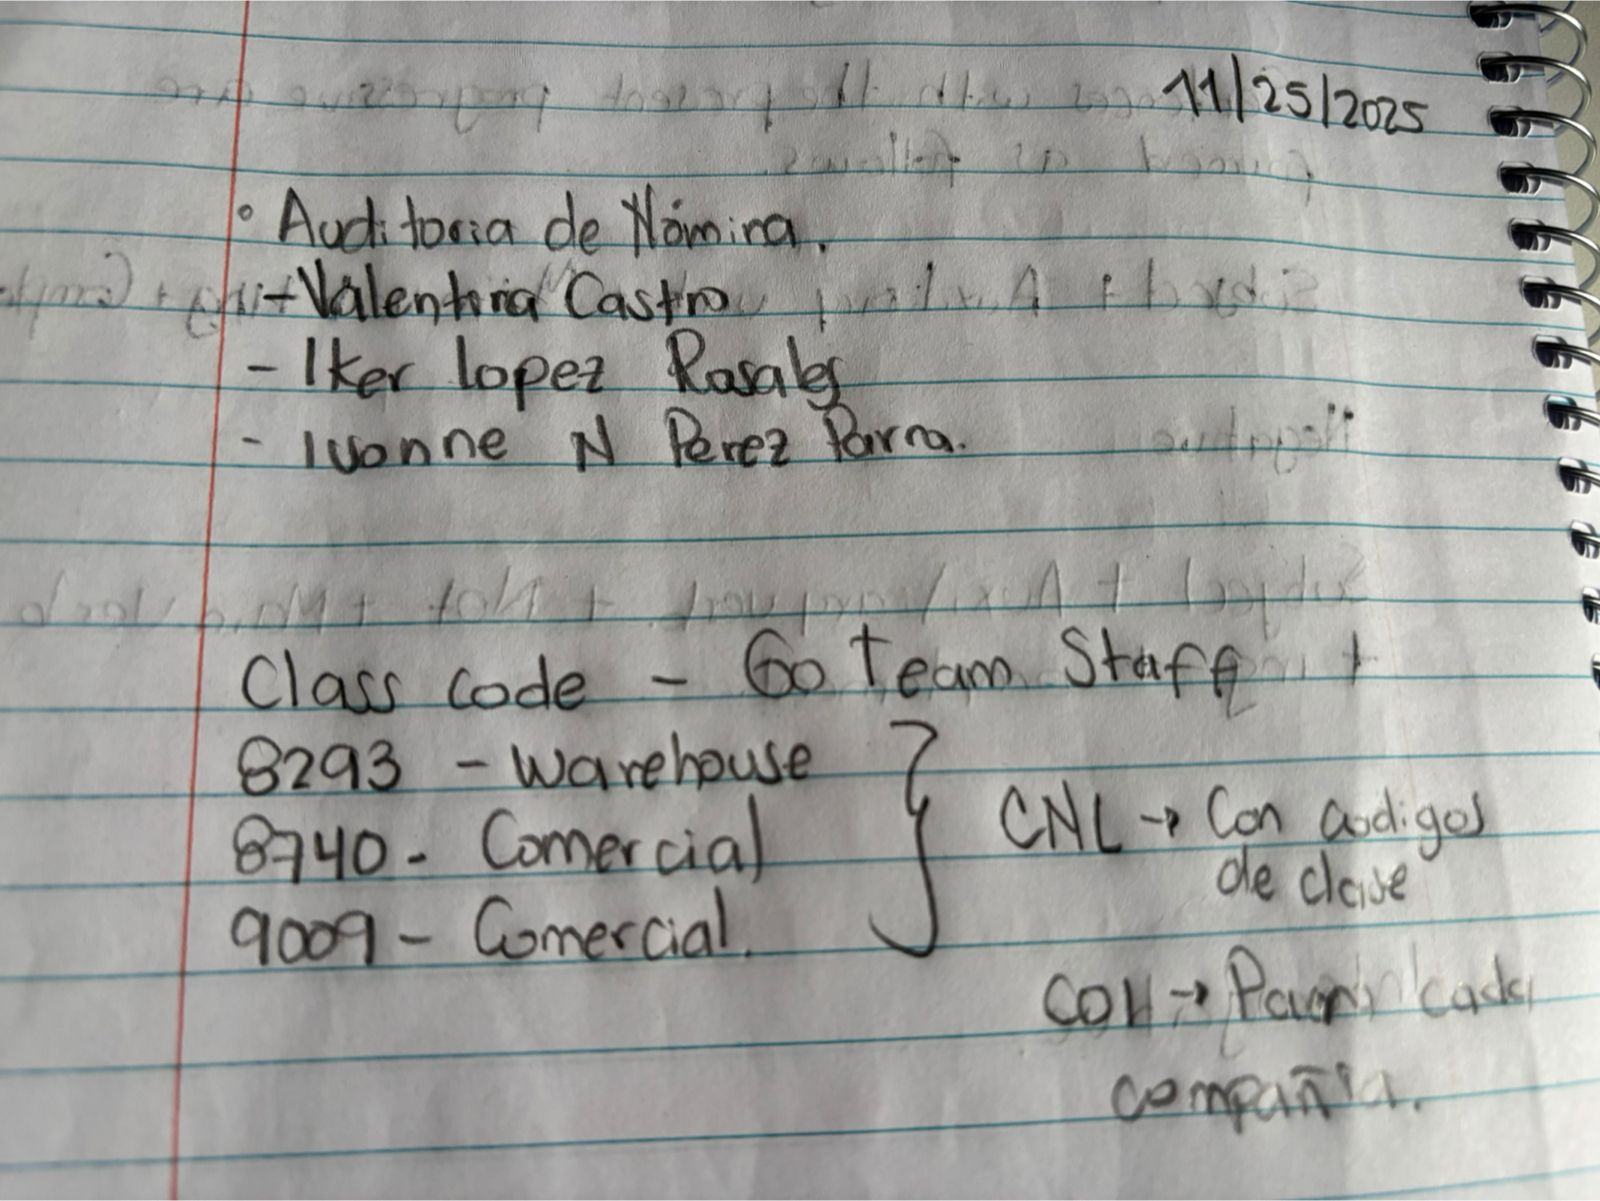 11/25/2025
° Auditoria de Nómina.
- Valentina Castro
- Iker lopez Rosales
- Ivonne N Perez Parra.
Class code - Go Team Staff
8293 - Warehouse
8740 - Comercial
9009 - Comercial.
CNL → Con codigos
de clase
→ cada
compañia.